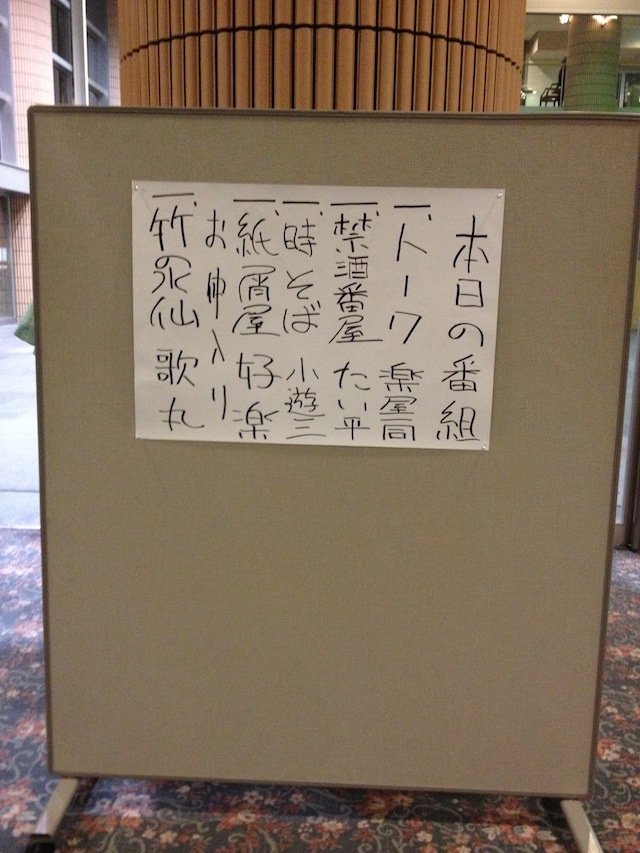 本日の番組
一、トーク 楽屋一同
一、禁酒番屋 たい平
一、時そば 小遊三
一、紙屑屋 好楽
お仲入り
一、竹の水仙 歌丸